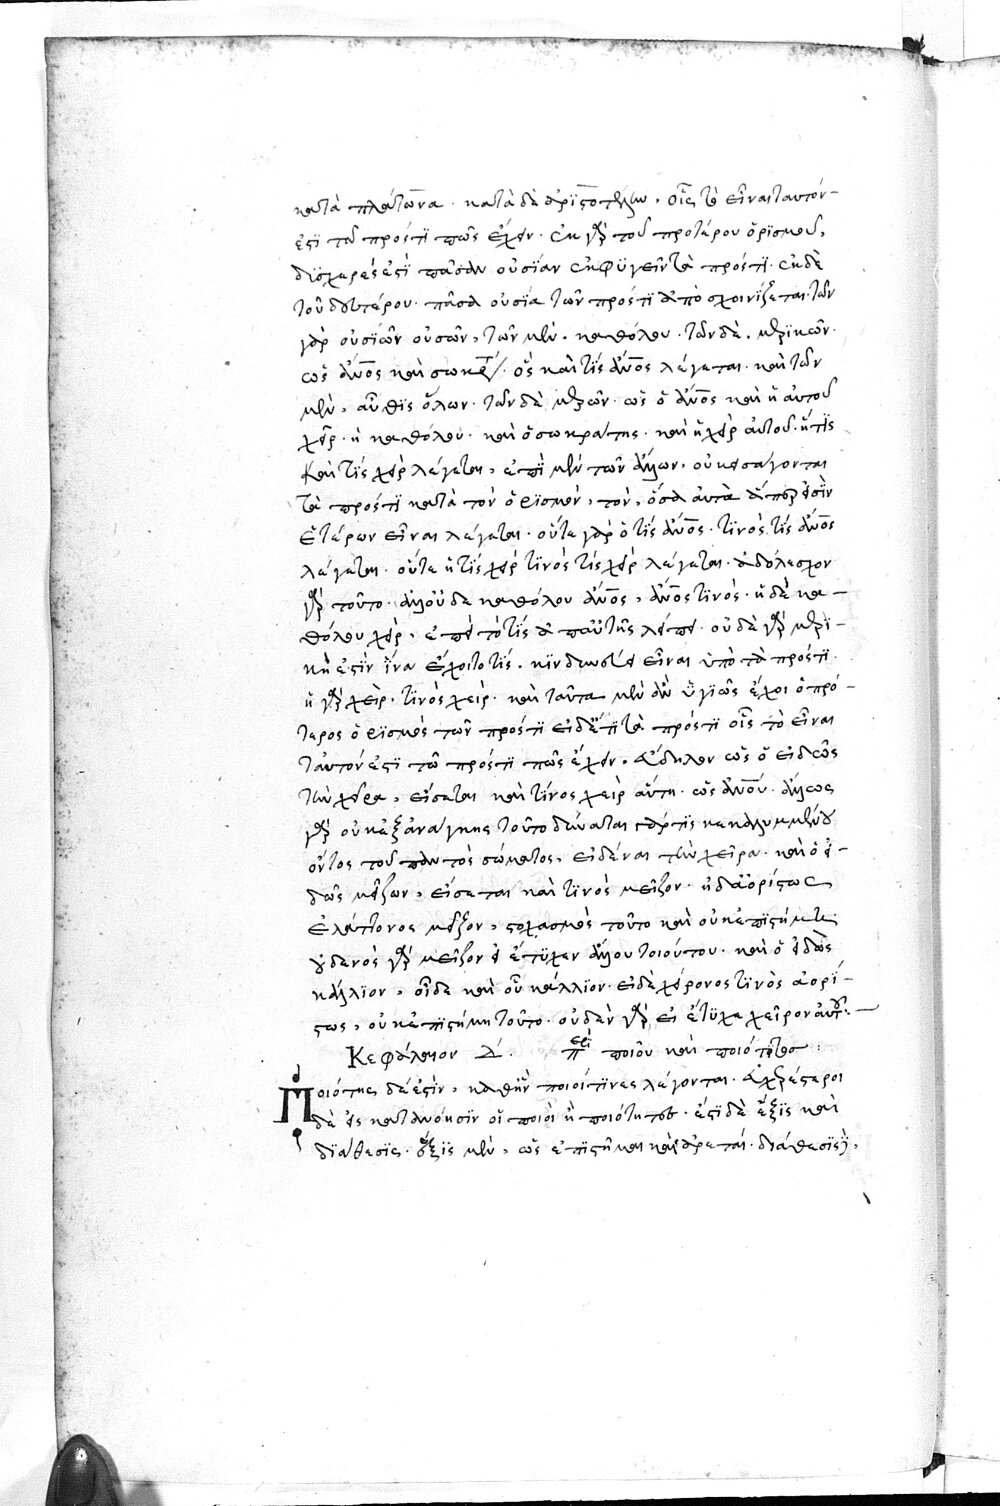 κατὰ πλάτωνα· κατὰ δὲ ἀριστοτέλην, οἷς τὸ εἶναι ταυτόν
ἐστι τῶ πρόστι πῶς ἔχειν· ἐκ γὰρ τοῦ προτέρου ὁρισμοῦ,
δυσχερές ἐστι πᾶσαν οὐσίαν ἐκφυγεῖν τὰ πρόστι· ἐκ δὲ
τοῦ δευτέρου· πᾶσα οὐσία τῶν πρόστι ἀποσχοινίζεται· τῶν
γὰρ οὐσιῶν οὐσῶν, τῶν μὲν· καθόλου· τῶν δὲ· μερικῶν·
ὡς ἄνος καὶ σωκράτης· ὃς καὶ τὶς ἄνος λέγεται· καὶ τῶν
μὲν, αὖθις ὅλων· τῶν δὲ μερῶν· ὡς ὁ ἄνος καὶ ἡ αὐτοῦ
χεὶρ· ἡ καθόλου· καὶ ὁ σωκράτης· καὶ ἡ χεὶρ αὐτοῦ· ἥτις
καὶ τὶς χεὶρ λέγεται, ἐπὶ μὲν τῶν ἄλλων, οὐκ εἰσάγονται
τὰ πρόστι κατὰ τὸν ὁρισμὸν, τὸν, ὅσα αὐτὰ ἅπερ ἐσὶν
ἑτέρων εἶναι λέγεται· οὔτε γὰρ ὁ τὶς ἄνος· τινὸς τὶς ἄνος
λέγεται· οὔτε ἡ τὶς χεὶρ τινὸς τὶς χεὶρ λέγεται· ἀδόλεσχον
γὰρ τοῦτο· ἀλλ' οὐδὲ καθόλου ἄνος, ἄνος τινός· ἡ δὲ κα-
θόλου χεὶρ, ἐπεὶ τὸ τὶς ἀπ' αὐτῆς λείπει· οὐδὲ γὰρ μερι-
κὴ ἐστὶν ἵνα ἔχοι τὸ τίς· κινδυνεύει εἶναι ὑπὸ τὰ πρόστι·
ἡ γὰρ χεὶρ· τινὸς χεὶρ· καὶ ταῦτα μὲν ἂν ὑγιῶς ἔχοι ὁ πρό-
τερος ὁρισμὸς τῶν πρόστι εἰ δέ ἐστι τὰ πρόστι οἷς τὸ εἶναι
ταὐτόν ἐστι τῶ πρόστι πῶς ἔχειν, δῆλον ὡς ὁ εἰδὼς
τὴν χεῖρα, εἴσεται καὶ τίνος χεὶρ αὕτη· ὡς ἀνου· ἄλλως
γὰρ οὐκ ἐξ ἀνάγκης τοῦτο δύναται γάρ τις κεκαλυμμένου
ὄντος τοῦ παντὸς σώματος, εἰδέναι τὴν χεῖρα· καὶ ὁ εἰ-
δὼς μεῖζον, εἴσεται καὶ τινὸς μεῖζον· εἰ δ' ἀορίστως
ἐλάττονος μεῖζον, στοχασμὸς τοῦτο καὶ οὐκ ἐπιστήμη·
οὐδενὸς γὰρ μεῖζον εἰ ἔτυχεν ἄλλου τοιούτου· καὶ ὁ εἰδὼς
κάλλιον, οἶδε καὶ οὗ κάλλιον· εἰ δὲ χείρονος τινὸς ἀορί-
στως, οὐκ ἐπιστήμη τοῦτο· οὐδὲν γὰρ εἰ ἔτυχε χεῖρον αὐτοῦ·
Κεφάλαιον Δ΄. περὶ ποιοῦ καὶ ποιότητος·
Ποιότης δέ ἐστιν, καθ' ἣν ποιοί τινες λέγονται·
δὲ εἰς κατανόησιν οἱ ποιοὶ ἢ ποιότητος· ἔστι δὲ ἕξις καὶ
διάθεσις· ἕξις μὲν, ὡς ἐπιστῆμαι καὶ ἀρεταί· διάθεσις δὲ,